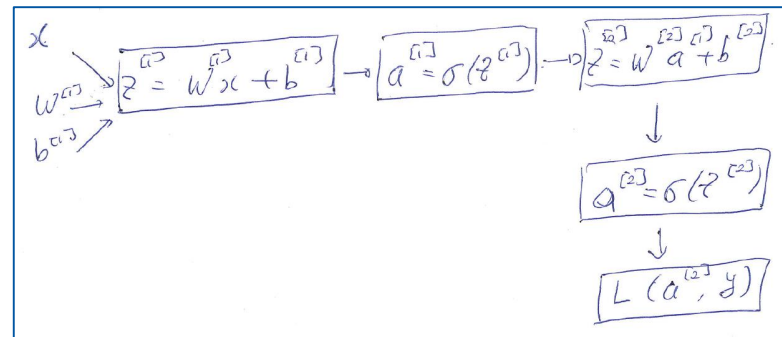 x
W^[1]
b^[1]
z^[1] = W^[1] x + b^[1]
a^[1] = σ(z^[1])
z^[2] = W^[2] a^[1] + b^[2]
a^[2] = σ(z^[2])
L (a^[2], y)